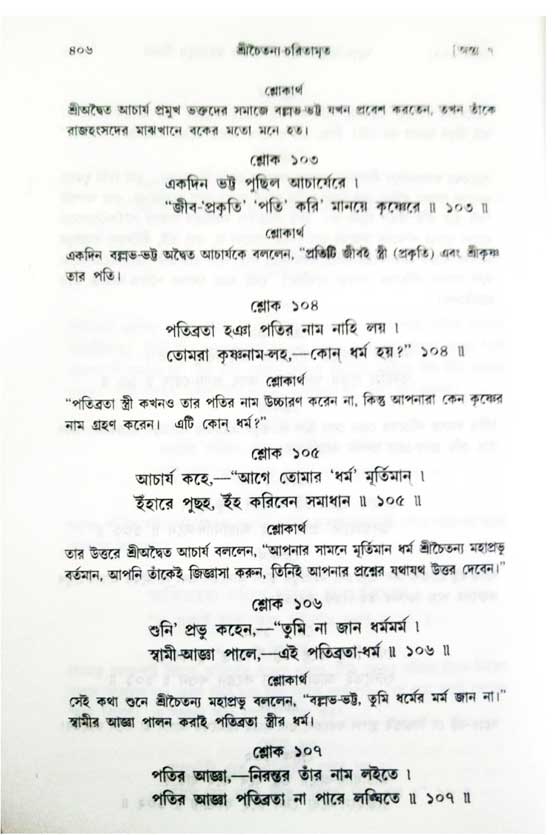 ৪০৬ শ্রীচৈতন্য-চরিতামৃত [অন্ত্য ৭
শ্লোকার্থ
শ্রীঅদ্বৈত আচার্য প্রমুখ ভক্তদের সমাজে বল্লভ-ভট্ট যখন প্রবেশ করতেন, তখন তাঁকে
রাজহংসদের মাঝখানে বকের মতো মনে হত।
শ্লোক ১০৩
একদিন ভট্ট পুছিল আচার্যেরে ।
“জীব-‘প্রকৃতি’ ‘পতি’ করি’ মানয়ে কৃষ্ণেরে ॥ ১০৩ ॥
শ্লোকার্থ
একদিন বল্লভ-ভট্ট অদ্বৈত আচার্যকে বললেন, “প্রতিটি জীবই স্ত্রী (প্রকৃতি) এবং শ্রীকৃষ্ণ
তার পতি।
শ্লোক ১০৪
পতিব্রতা হঞা পতির নাম নাহি লয় ।
তোমরা কৃষ্ণনাম-লহ,—কোন্ ধর্ম হয়?” ১০৪ ॥
শ্লোকার্থ
“পতিব্রতা স্ত্রী কখনও তার পতির নাম উচ্চারণ করেন না, কিন্তু আপনারা কেন কৃষ্ণের
নাম গ্রহণ করেন। এটি কোন্ ধর্ম?”
শ্লোক ১০৫
আচার্য কহে,—“আগে তোমার ‘ধর্ম’ মূর্তিমান্ ।
ইঁহারে পুছহ, ইঁহ করিবেন সমাধান ॥ ১০৫ ॥
শ্লোকার্থ
তার উত্তরে শ্রীঅদ্বৈত আচার্য বললেন, “আপনার সামনে মূর্তিমান ধর্ম শ্রীচৈতন্য মহাপ্রভু
বর্তমান, আপনি তাঁকেই জিজ্ঞাসা করুন, তিনিই আপনার প্রশ্নের যথাযথ উত্তর দেবেন।”
শ্লোক ১০৬
শুনি’ প্রভু কহেন,—“তুমি না জান ধর্মমর্ম ।
স্বামী-আজ্ঞা পালে,—এই পতিব্রতা-ধর্ম ॥ ১০৬ ॥
শ্লোকার্থ
সেই কথা শুনে শ্রীচৈতন্য মহাপ্রভু বললেন, “বল্লভ-ভট্ট, তুমি ধর্মের মর্ম জান না।”
স্বামীর আজ্ঞা পালন করাই পতিব্রতা স্ত্রীর ধর্ম।
শ্লোক ১০৭
পতির আজ্ঞা,—নিরন্তর তাঁর নাম লইতে ।
পতির আজ্ঞা পতিব্রতা না পারে লঙ্ঘিতে ॥ ১০৭ ॥